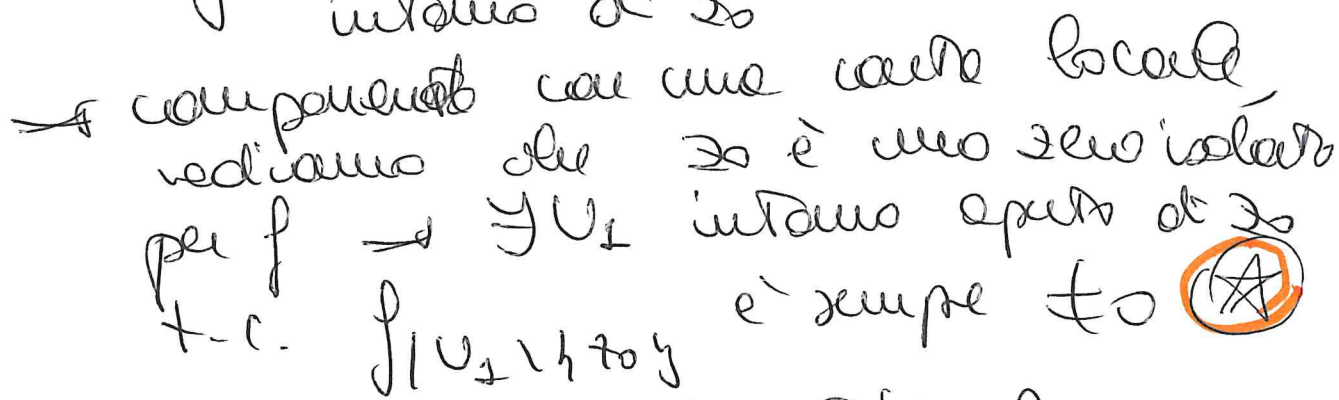 intorno di z0
→ componendo con una carta locale
vediamo che z0 è uno zero isolato
per f → ∃U1 intorno aperto di z0
t.c. f|U1\{z0} è sempre ≠0 ☆